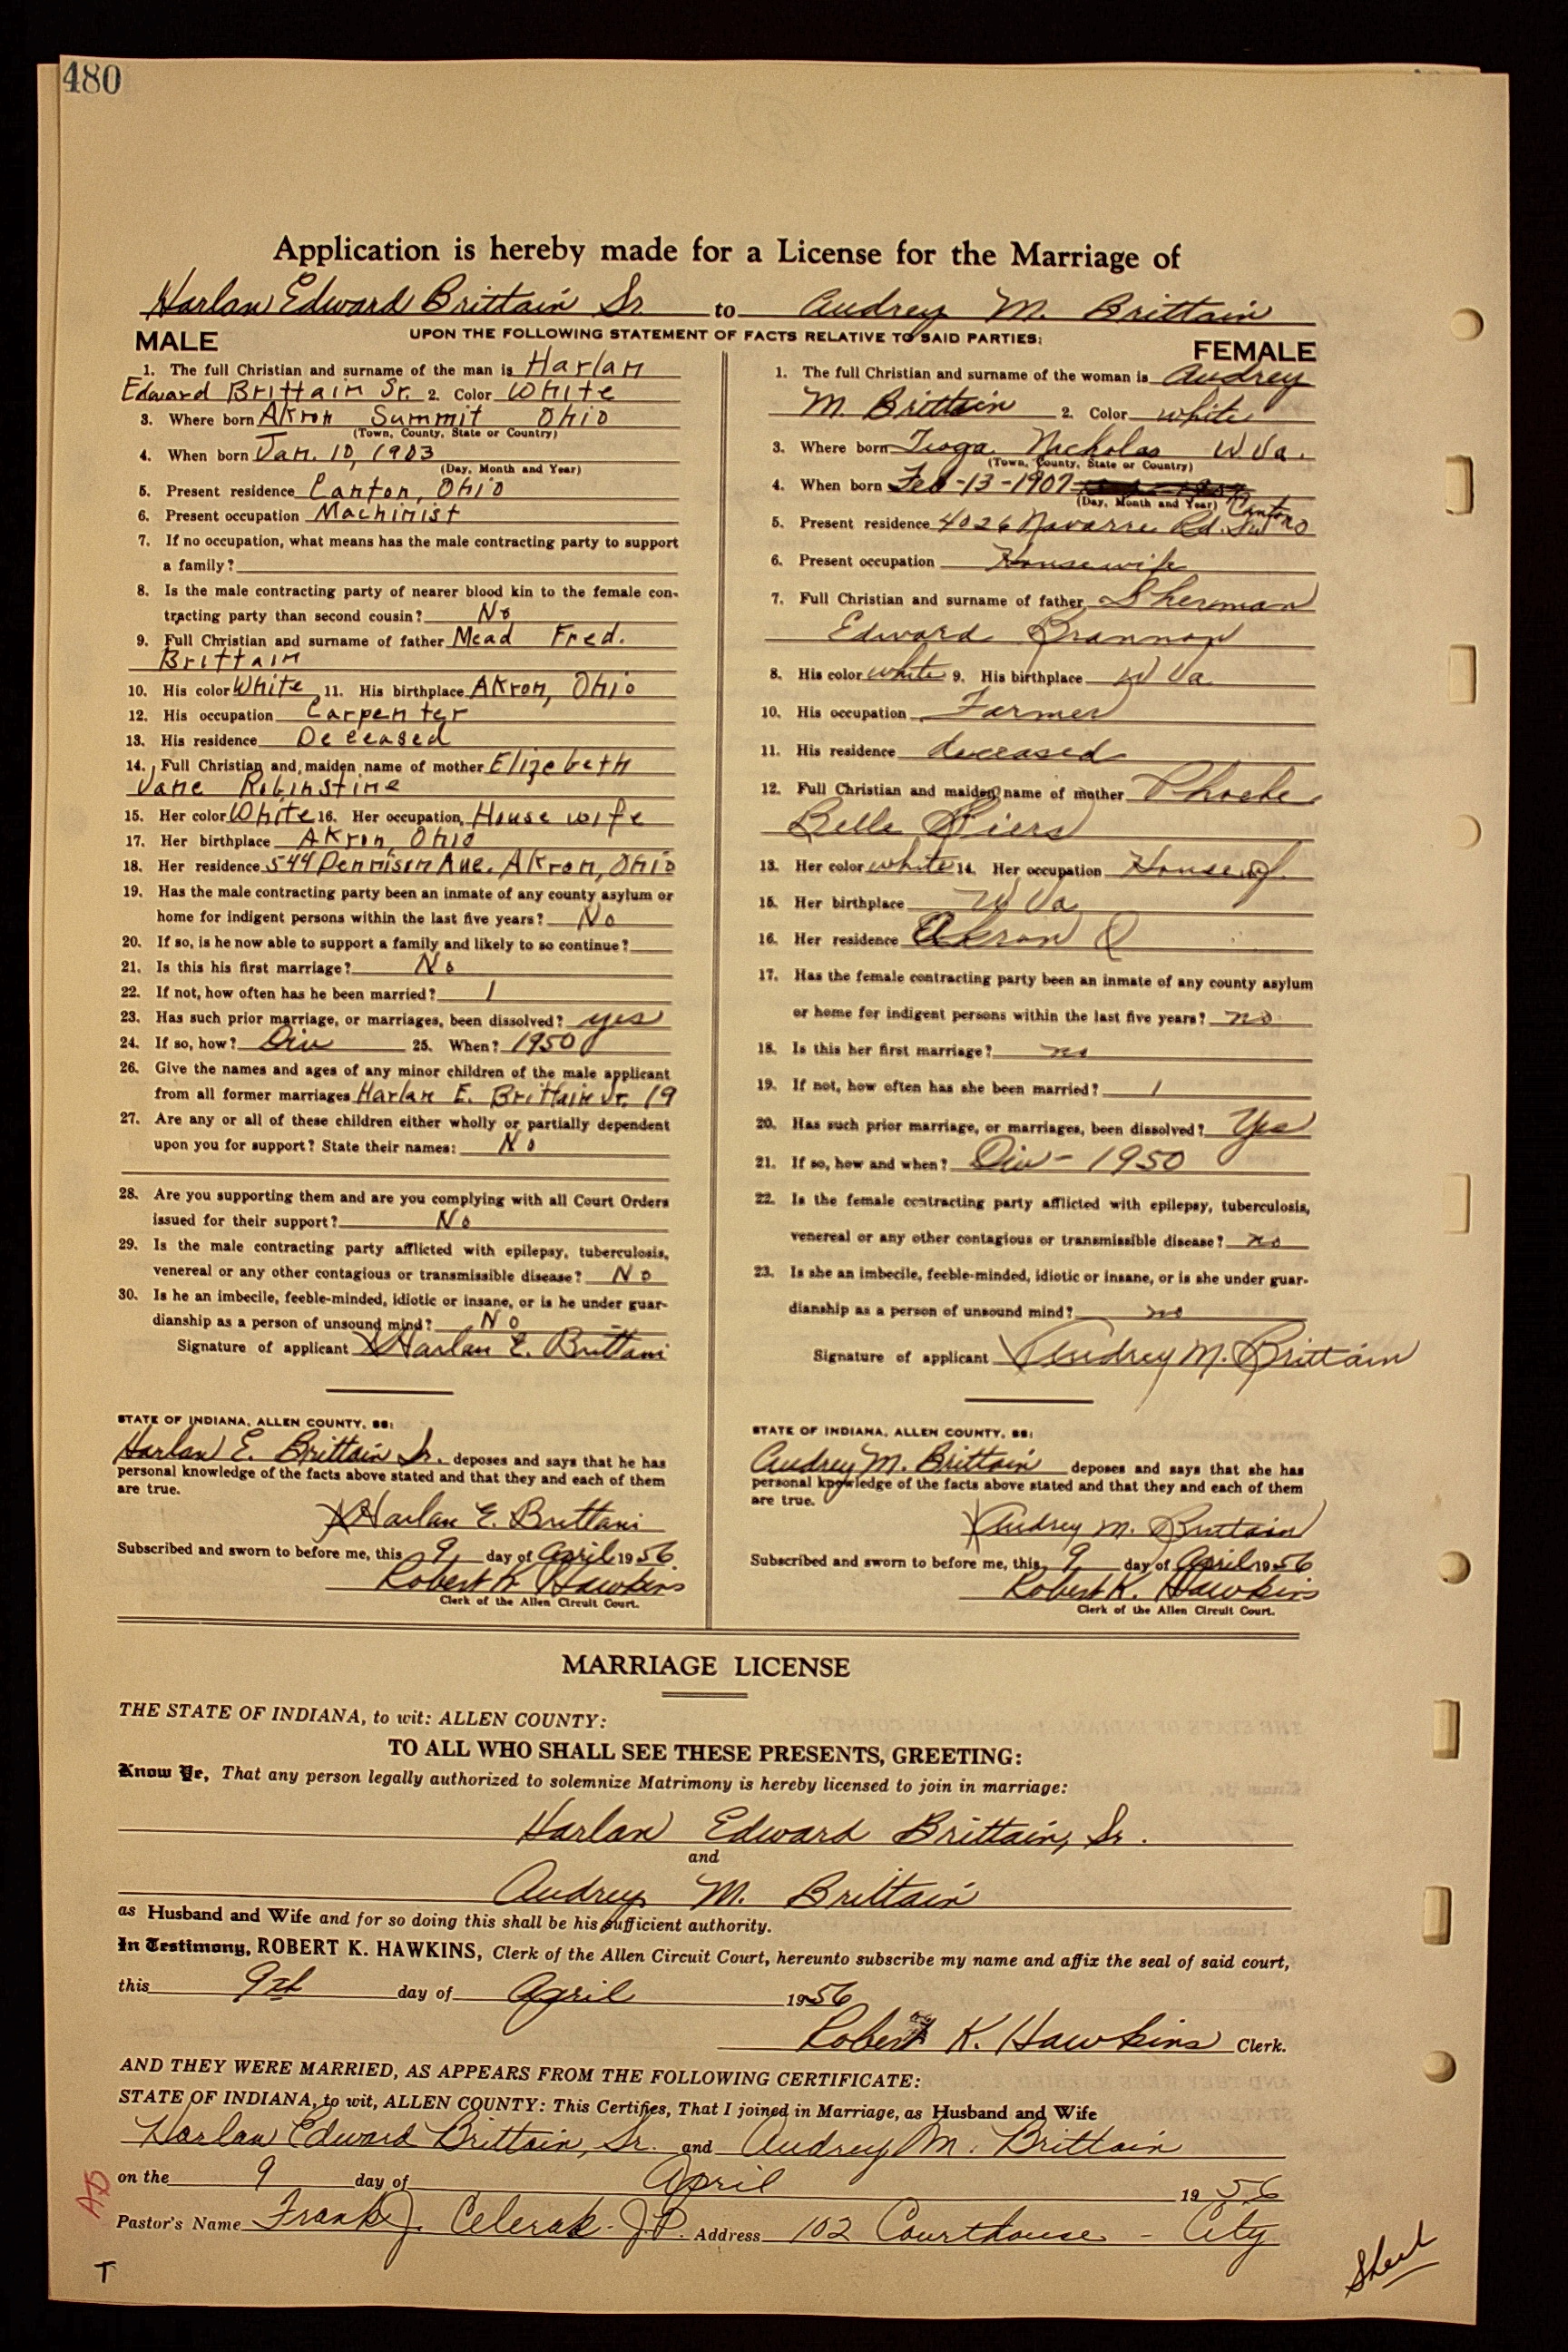 480
Application is hereby made for a License for the Marriage of
Harlan Edward Brittain Sr. to Audrey M. Brittain
UPON THE FOLLOWING STATEMENT OF FACTS RELATIVE TO SAID PARTIES:
MALE
1. The full Christian and surname of the man is Harlan
Edward Brittain Sr. 2. Color White
3. Where born Akron Summit Ohio
(Town, County, State or Country)
4. When born Jan. 10, 1903
(Day, Month and Year)
5. Present residence Canton, Ohio
6. Present occupation Machinist
7. If no occupation, what means has the male contracting party to support
a family?
8. Is the male contracting party of nearer blood kin to the female con-
tracting party than second cousin? No
9. Full Christian and surname of father Mead Fred.
Brittain
10. His color White 11. His birthplace Akron, Ohio
12. His occupation Carpenter
13. His residence Deceased
14. Full Christian and maiden name of mother Elizebeth
Jane Robinstine
15. Her color White 16. Her occupation House wife
17. Her birthplace Akron Ohio
18. Her residence 544 Dennison Ave. Akron, Ohio
19. Has the male contracting party been an inmate of any county asylum or
home for indigent persons within the last five years? No
20. If so, is he now able to support a family and likely to so continue?
21. Is this his first marriage? No
22. If not, how often has he been married? 1
23. Has such prior marriage, or marriages, been dissolved? yes
24. If so, how? Div 25. When? 1950
26. Give the names and ages of any minor children of the male applicant
from all former marriages Harlan E. Brittain Jr. 19
27. Are any or all of these children either wholly or partially dependent
upon you for support? State their names: No
28. Are you supporting them and are you complying with all Court Orders
issued for their support? No
29. Is the male contracting party afflicted with epilepsy, tuberculosis,
venereal or any other contagious or transmissible disease? No
30. Is he an imbecile, feeble-minded, idiotic or insane, or is he under guar-
dianship as a person of unsound mind? No
Signature of applicant X Harlan E. Brittain
STATE OF INDIANA, ALLEN COUNTY, SS:
Harlan E. Brittain Sr. deposes and says that he has
personal knowledge of the facts above stated and that they and each of them
are true.
X Harlan E. Brittain
Subscribed and sworn to before me, this 9 day of April 1956
Robert K. Hawkins
Clerk of the Allen Circuit Court.
FEMALE
1. The full Christian and surname of the woman is Audrey
M. Brittain 2. Color white
3. Where born Tioga Nicholas W Va.
(Town, County, State or Country)
4. When born Feb-13-1907
(Day, Month and Year)
5. Present residence 4026 Navarre Rd. SW Canton O
6. Present occupation Housewife
7. Full Christian and surname of father Sherman
Edward Brannon
8. His color white 9. His birthplace W Va
10. His occupation Farmer
11. His residence deceased
12. Full Christian and maiden name of mother Phoebe
Belle Siers
13. Her color white 14. Her occupation Housewf.
15. Her birthplace W Va
16. Her residence Akron O
17. Has the female contracting party been an inmate of any county asylum
or home for indigent persons within the last five years? no
18. Is this her first marriage? no
19. If not, how often has she been married? 1
20. Has such prior marriage, or marriages, been dissolved? Yes
21. If so, how and when? Div - 1950
22. Is the female contracting party afflicted with epilepsy, tuberculosis,
venereal or any other contagious or transmissible disease? no
23. Is she an imbecile, feeble-minded, idiotic or insane, or is she under guar-
dianship as a person of unsound mind? no
Signature of applicant X Audrey M. Brittain
STATE OF INDIANA, ALLEN COUNTY, SS:
Audrey M. Brittain deposes and says that she has
personal knowledge of the facts above stated and that they and each of them
are true.
X Audrey M. Brittain
Subscribed and sworn to before me, this 9 day of April 1956
Robert K. Hawkins
Clerk of the Allen Circuit Court.
MARRIAGE LICENSE
THE STATE OF INDIANA, to wit: ALLEN COUNTY:
TO ALL WHO SHALL SEE THESE PRESENTS, GREETING:
Know Ye, That any person legally authorized to solemnize Matrimony is hereby licensed to join in marriage:
Harlan Edward Brittain, Sr.
and
Audrey M. Brittain
as Husband and Wife and for so doing this shall be his sufficient authority.
In Testimony, ROBERT K. HAWKINS, Clerk of the Allen Circuit Court, hereunto subscribe my name and affix the seal of said court,
this 9th day of April 1956
Robert K. Hawkins Clerk.
AND THEY WERE MARRIED, AS APPEARS FROM THE FOLLOWING CERTIFICATE:
STATE OF INDIANA, to wit, ALLEN COUNTY: This Certifies, That I joined in Marriage, as Husband and Wife
Harlan Edward Brittain, Sr. and Audrey M. Brittain
on the 9 day of April 1956
Pastor's Name Frank J. Celerak - J.P. Address 102 Courthouse - City
T